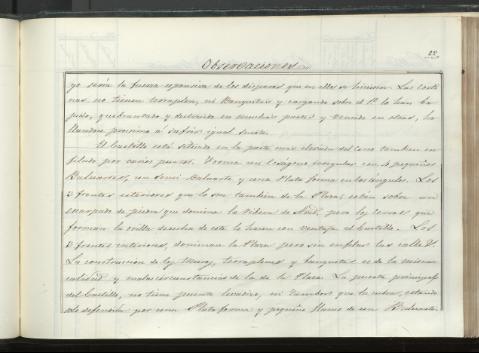 22
Observaciones
yo sería la fuerza espansiva de los disparos que en ellas se hiciesen. Las corti
nas no tienen terraplen, ni Banquetas y cargando sobre el
y destruida en muchas partes y en otras, ha
proxima a sufrir igual suerte.
El Castillo está situado en la parte mas elevada del cerro tambien en
filado por varios puntos. Forma un exágono irregular con 4 pequeños
Baluartes, un semi Baluarte y una Plataforma en los ángulos. Los
3 frentes exteriores que lo son tambien de la Plaza, estan sobre un
escarpado de piedra que domina la Ribera de pero los cerros que
forman la orilla derecha de este lo hacen con ventaja al Castillo. Los
3 frentes interiores, dominan la Plaza pero sin enfilar las calles.
La construccion de los Muros, terraplenes y banquetas es de la misma
calidad y malas circunstancias de la de la Plaza. La puerta principal
del Castillo, no tiene puente levadizo, ni Tambor que la cubra, estando
defendida por una Plataforma y pequeño flanco de un Baluarte